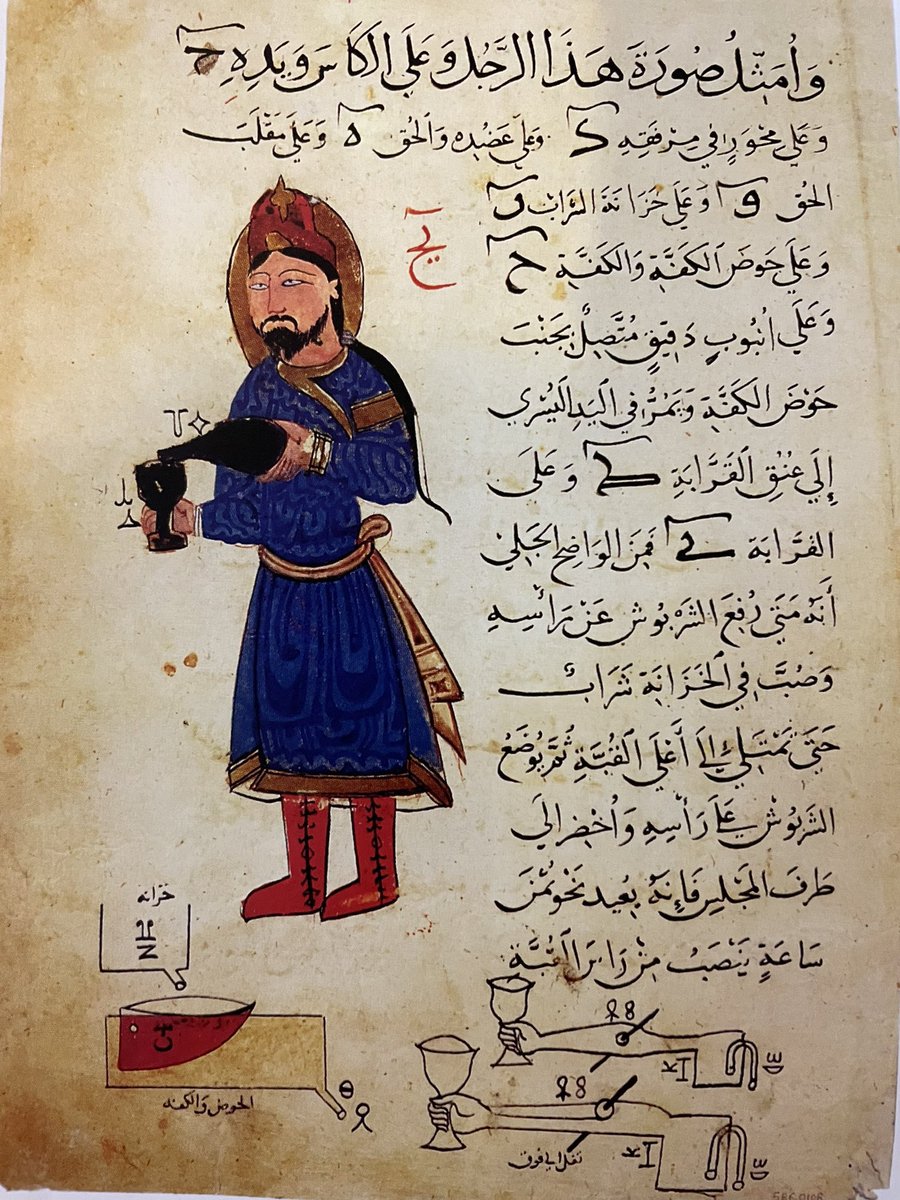 وَأُمَثِّلُ صُورَةَ هَذَا الرَّجُلِ وَعَلَى الكَاسِ وَيَدِهِ ح
وَعَلَى مِحْوَرٍ فِي مِرْفَقِهِ وَعَلَى عَضُدِهِ وَالحُق ه وَعَلَى مَقْلَبِ
الحُق و وَعَلَى خِزَانَةِ الشَّرَابِ
وَعَلَى حَوْضِ الكَفَّةِ وَالكَفَّةِ ح
وَعَلَى اُنْبُوبٍ دَقِيقٍ مُتَّصِلٌ بِجَنْبِ
حَوْضِ الكَفَّةِ وَيَمُرُّ فِي اليَدِ اليُسْرَي
إِلَي عُنُقِ القَرَّابَةِ وَعَلَى
القَرَّابَة فَمِنَ الوَاضِحِ الجَلِيّ
أَنَّهُ مَتَي رُفِعَ الشَّرْبُوش عَنْ رَأْسِهِ
وَصُبَّ فِي الخَزَانَةِ شَرَابٌ
حَتَّى تَمْتَلِئَ إِلَى أَعْلَى القُبَّةِ ثُمَّ يُوضَعُ
الشَّرْبُوش عَلَى رَأْسِهِ وَأُحْضِرَ إِلَي
طَرَفِ المَجْلِسِ فَإِنَّهُ بُعَيْدَ نَحْوِ ثُمْنِ
سَاعَةٍ يَنْصَبُّ مِنْ القُبَّة
خزانه
الحوض والكفه